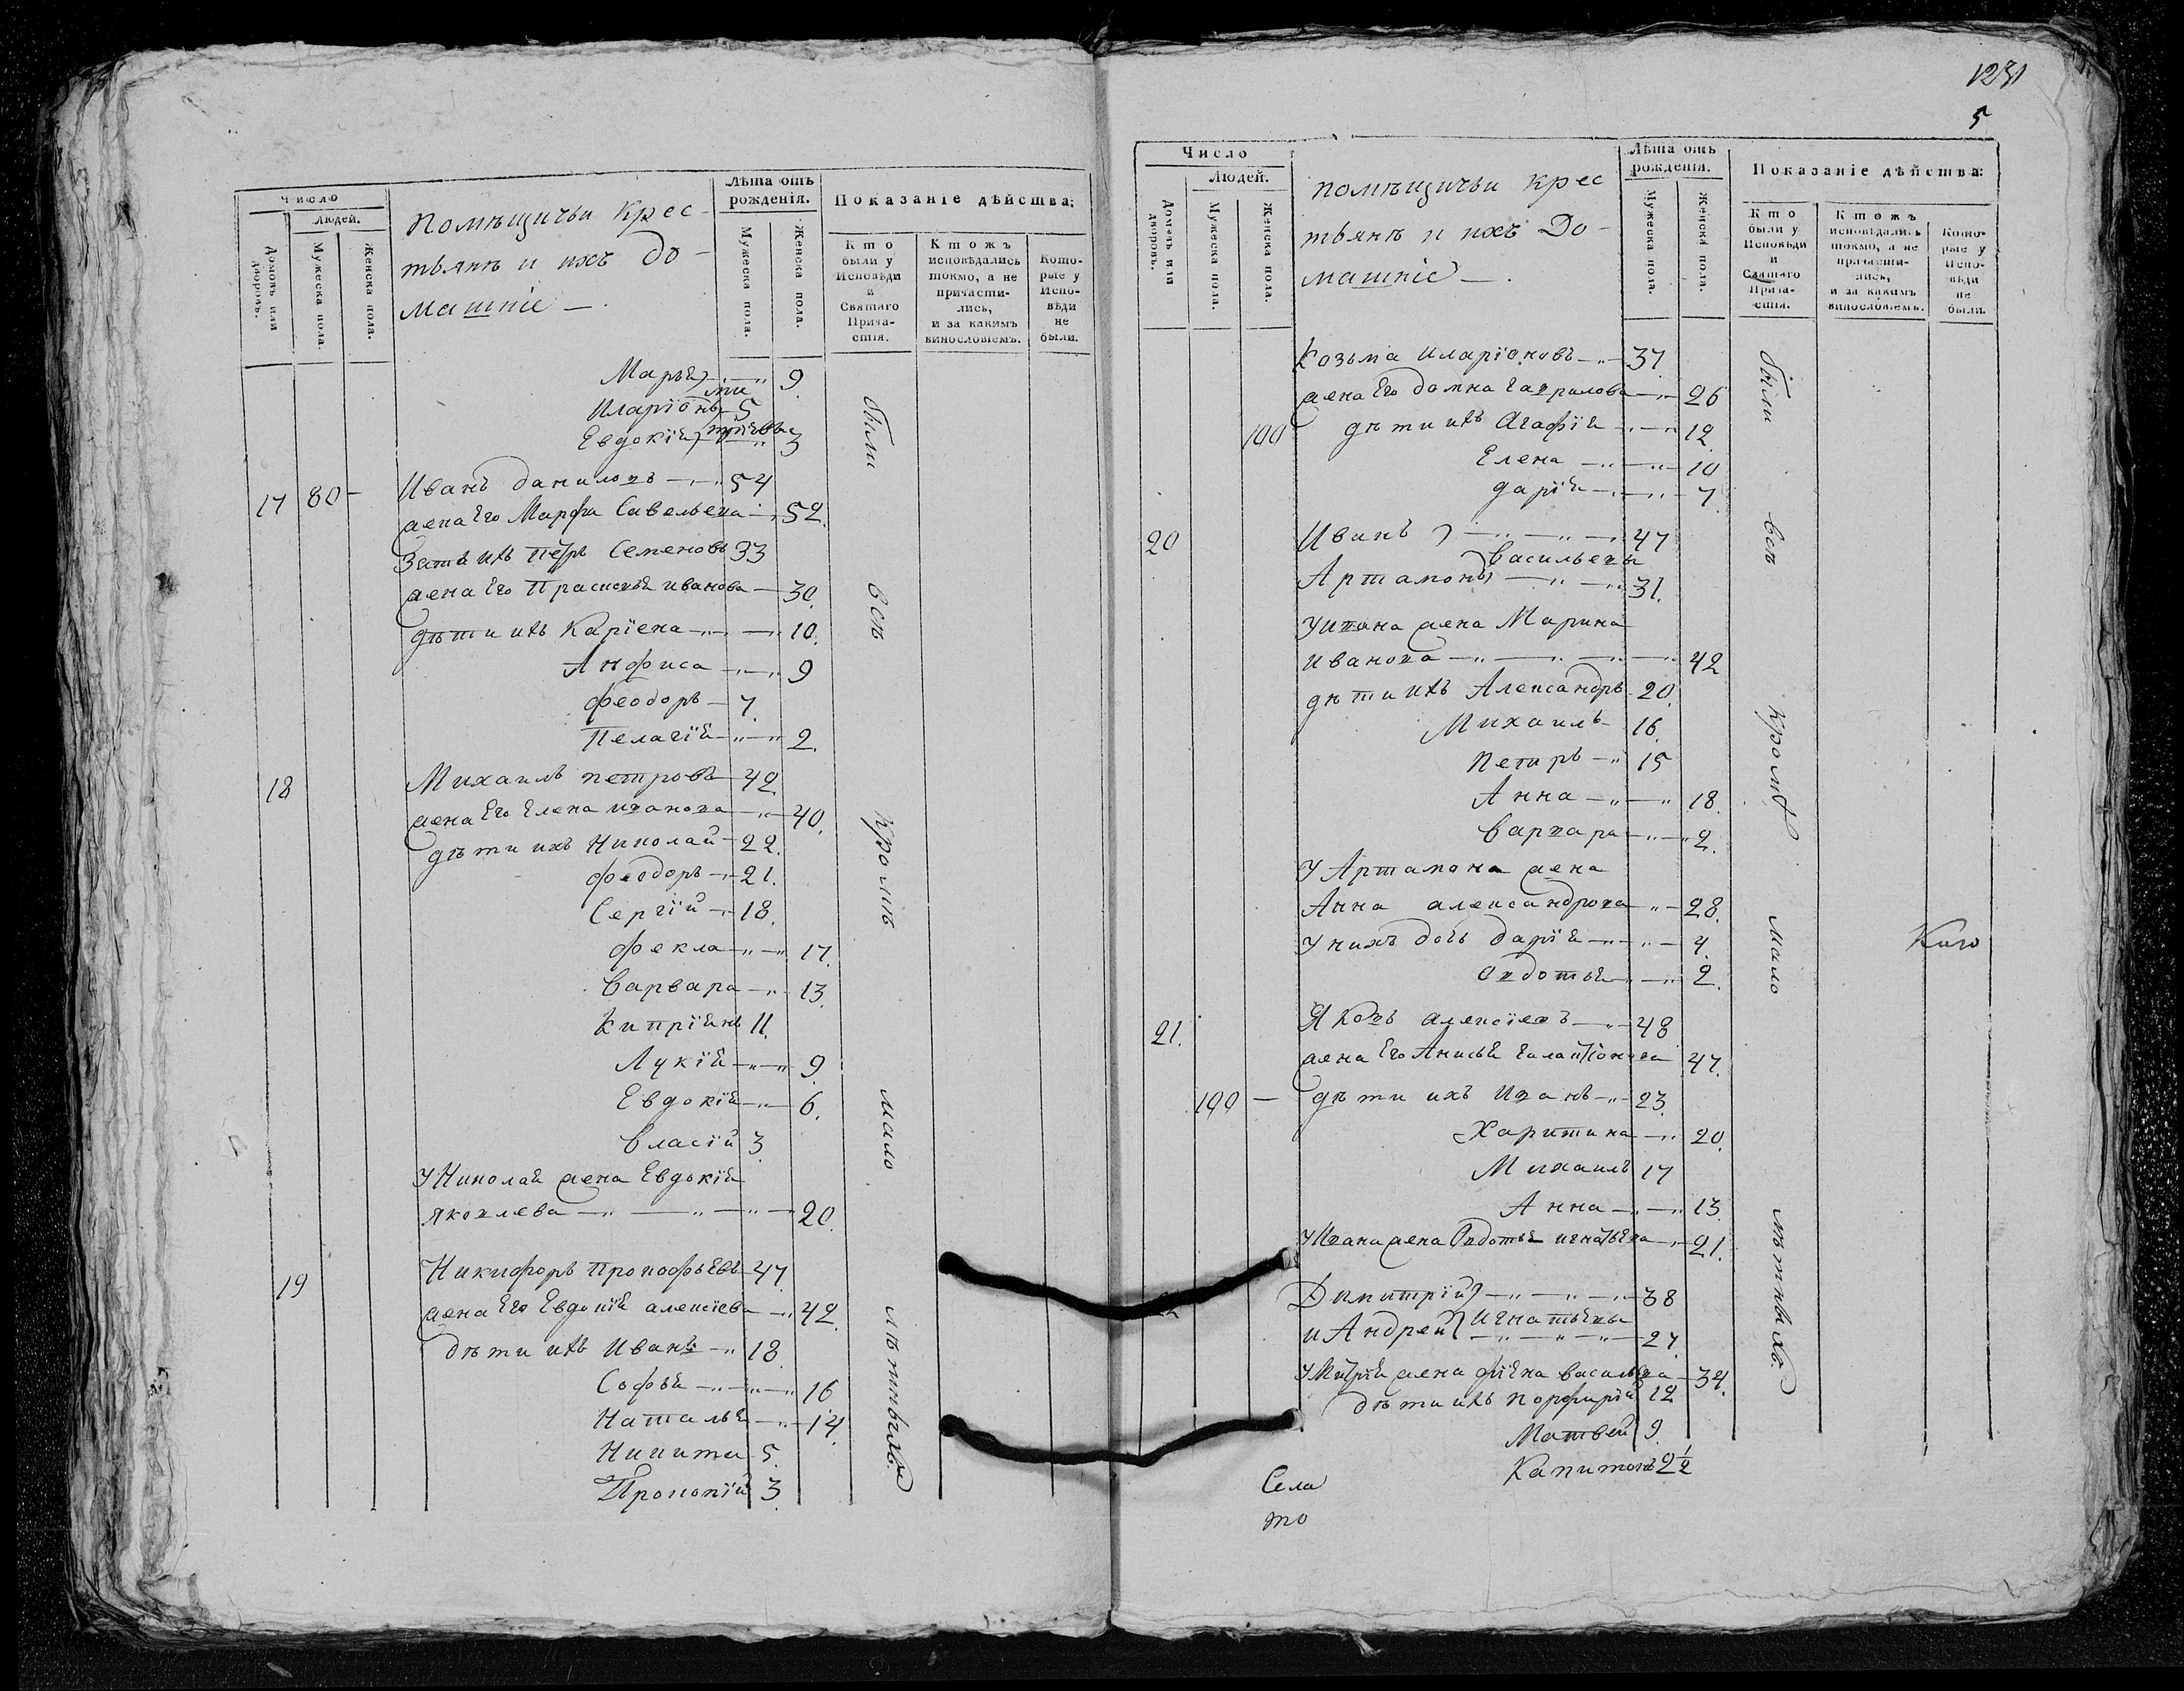 Число
Людей.
Домовъ или дворовъ.
Мужеска пола.
Женска пола.
помѣщичьи крес-
тьянѣ и ихъ до-
машніе —.
Лѣта отъ рожденія.
Мужеска пола.
Женска пола.
Показаніе дѣйства:
Кто были у Исповѣди и Святаго Прича-стія.
Ктожъ исповѣдались токмо, а не причасти-лись, и за какимъ винословіемъ.
Кото-рые у Испо-вѣди не были.
Марья 9
Иларіонъ 5
Евдокія 3
17 80 — Иванъ Даниловъ 54
жена Его Марфа Савельева 52.
Зять ихъ Петръ Семеновъ 33
жена Его Прасковья иванова 30.
дѣти ихъ 10.
Анфиса 9
Феодоръ 7.
Пелагія 2.
18 Михаилъ петровъ 42
жена Его Елена иванова 40.
дѣти ихъ Николай 22.
Феодоръ 21.
Сергій 18.
Фекла 17.
Варвара 13.
Кипріянъ 11.
Лукія 9.
Евдокія 6.
Власій 3.
У Николая жена Евдокія
яковлева 20.
19 Никифоръ Прокофьевъ 47
жена Его Евдокія алексіева 42.
дѣти ихъ Иванъ 18
Софья 16
Наталья 14.
Никита 5.
Прокопій 3.
были всѣ кромѣ мало лѣтныхъ.
1231
5
Число
Людей.
Домовъ или дворовъ.
Мужеска пола.
Женска пола.
помѣщичьи крес
тьянѣ и ихъ До-
машніе —.
Лѣта отъ рожденія.
Мужеска пола.
Женска пола.
Показаніе дѣйства:
Кто были у Исповѣди и Святаго Прича-стія.
Ктожъ исповѣдались токмо, а не причасти-лись, и за какимъ винословіемъ.
Кото-рые у Испо-вѣди не были.
Козьма Иларіоновъ 37
жена Его Домна Гаврилова 26
100 дѣти ихъ Агафія 12
Елена 10
дарія 7.
20 Иванъ 47
Васильевы
Артамонъ 31.
У ивана жена Марина
иванова 42
дѣти ихъ Александръ 20.
Михаилъ 16.
Петръ 15
Анна 18.
Варвара 2.
У Артамона жена
Анна александрова 28.
У нихъ дочь Дарія 4.
Овдотья 2.
21. Яковъ алексіевъ 48
жена Его Анисья Галактіонова 47.
100 — дѣти ихъ Иванъ 23.
Харитина 20.
Михаилъ 17
Анна 13.
У Ивана жена Овдотья игнатьева 21.
22 Димитрій 38
Игнатьевы
и Андрей 27.
У Митрія жена васильева 34.
дѣти ихъ Порфирій 12
Матвей 9.
Капитонъ 2 1/2
были всѣ кромѣ мало лѣтныхъ.
Села
то